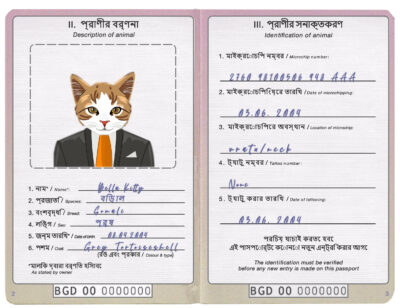 II. প্রাণীর বর্ণনা
Description of animal
1. নাম* / Name*: Bella Kitty
2. প্রজাতি / Species: বিড়াল
3. বংশবৃদ্ধি / Breed:
4. লিঙ্গ / Sex: পুরুষ
5. জন্ম তারিখ* / Date of birth:
6. পশম / Coat: Grey Tortoiseshell
(রঙ এবং প্রকার / Colour & type)
*মালিক দ্বারা বর্ণিত হিসাবে
As stated by owner
BGD 00 0000000
2
III. প্রাণীর সনাক্তকরণ
Identification of animal
1. মাইক্রোচিপ নম্বর / Microchip number:
2. মাইক্রোচিপিংয়ের তারিখ / Date of microchipping:
03.06.2004
3. মাইক্রোচিপের অবস্থান / Location of microchip:
4. ট্যাটু নম্বর / Tattoo number:
None
5. ট্যাটু করার তারিখ / Date of tattooing:
03.06.2004
পরিচয় যাচাই করতে হবে
এই পাসপোর্টে কোনো নতুন এন্ট্রি করার আগে
The identification must be verified
before any new entry is made on this passport
BGD 00 0000000
3